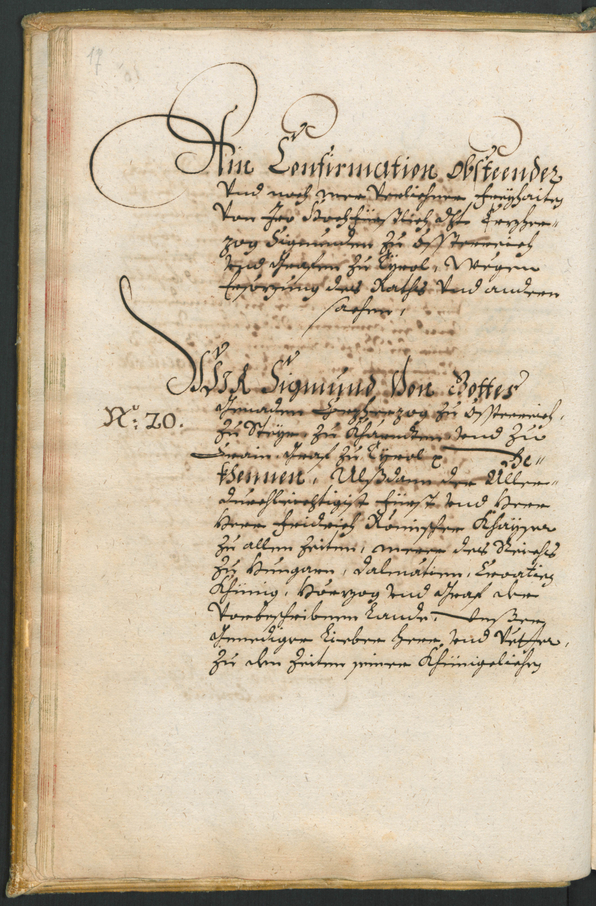 17
Ain Confirmation obsteender
Vnd noch mer Verlichner Freyhaiten
Von Irer Hochfürstlich dht Erzher-
zog Sigmunden zu Össterreich
Vnd Grafen zu Tyrol, Wegen
besezung des Raths Vnd andern
sachen,
WIR Sigmund Von Gottes
No: 20.
Genaden Erzherzog zu Össterreich,
zu Steyr zu Khärndten Vnd zu
Crain, Graf zu Tyrol &c Be-
khennen, Alßdann der Aller-
durchleichtigist Fürst Vnd Herr
Herr Fridrich Römischer Khayser
zu allen Zeiten, merer des Reichs
zu Hungarn, Dalmatien, Croatien
Khünig, Herzog Vnd Graf der
Vorbeschribnen Lande, Vnßer
Genediger Lieber Herr Vnd Vetter,
zu den Zeiten seiner Khünigclichen